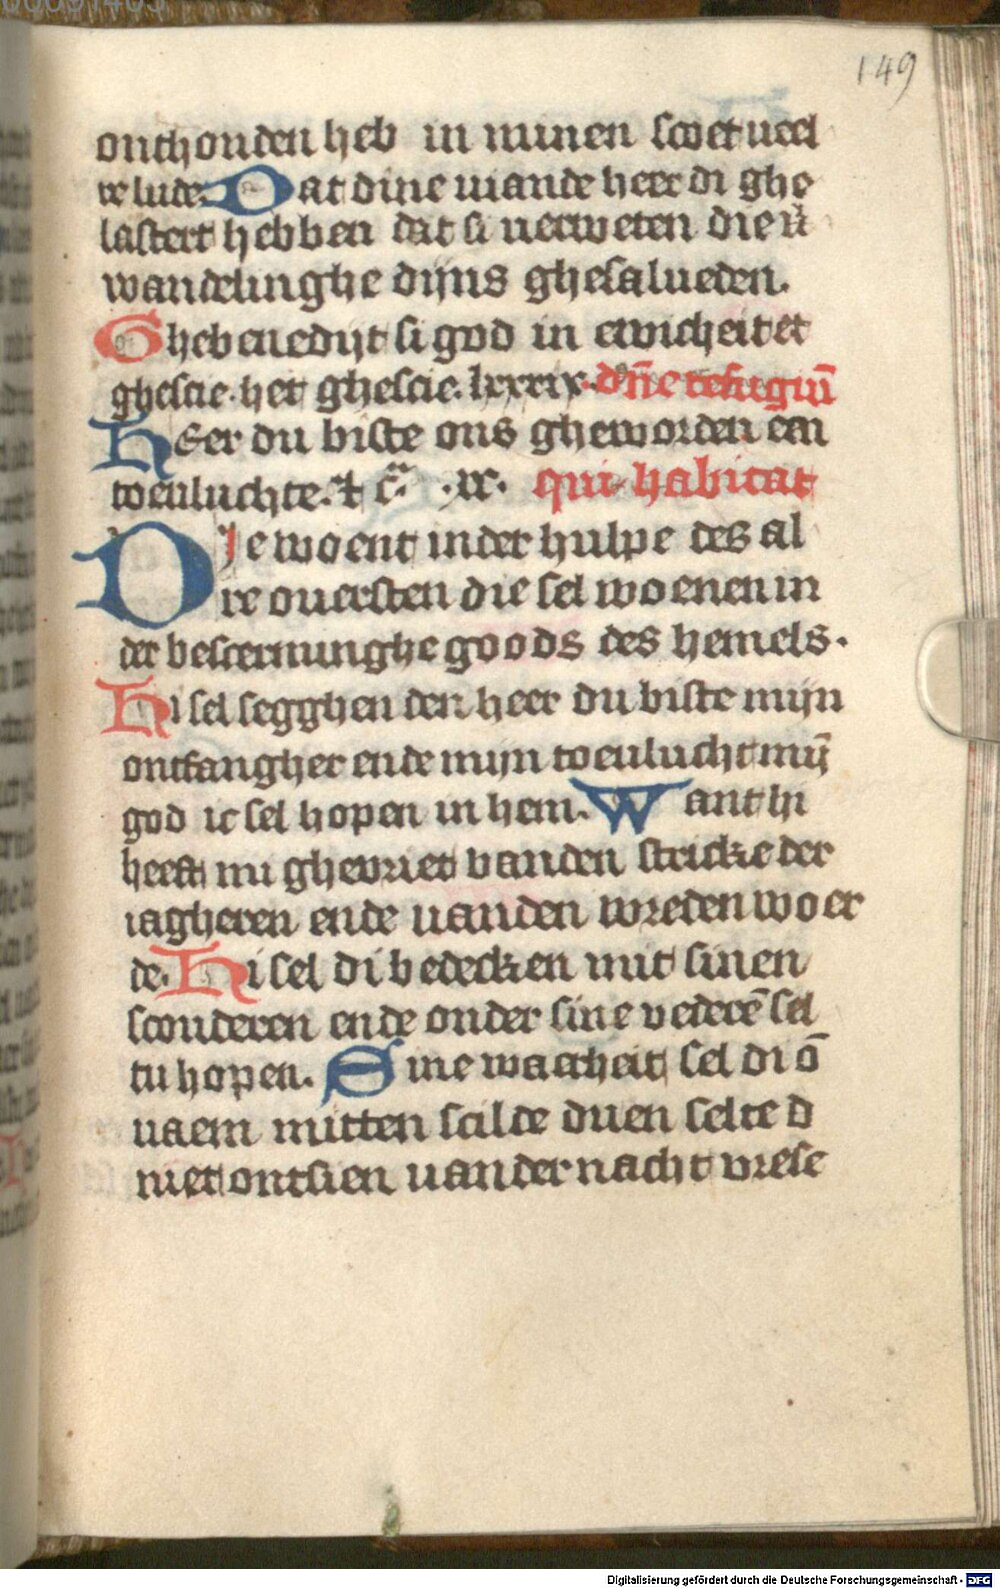 149
onthouden heb in minen scoet veel
re lude. Dat dine viande heer di ghe
lastert hebben dat si verweten die v̄
wandelinghe dijns ghesalueden.
Ghebenedijt si god in ewicheit et
ghescie. het ghescie. lxxxix. dn̄e refugiū
HEer du biste ons gheworden een
toeuluchte. .xc. qui habitat
DIe woent inder hulpe des al
re ouersten die sel woenen in
der bescerminghe goods des hemels.
Hi sel segghen den heer du biste mijn
ontfangher ende mijn toeulucht mij̄
god ic sel hopen in hem. Want hi
heeft mi ghevriet vanden stricke der
iagheren ende vanden wreden woer
de. Hi sel di bedecken mit sinen
scouderen ende onder sine vederē sel
tu hopen. Sine waerheit sel di ō
uaem mitten scilde duen selte d
niet ontsien vander nacht vrese
Digitalisierung gefördert durch die Deutsche Forschungsgemeinschaft - DFG